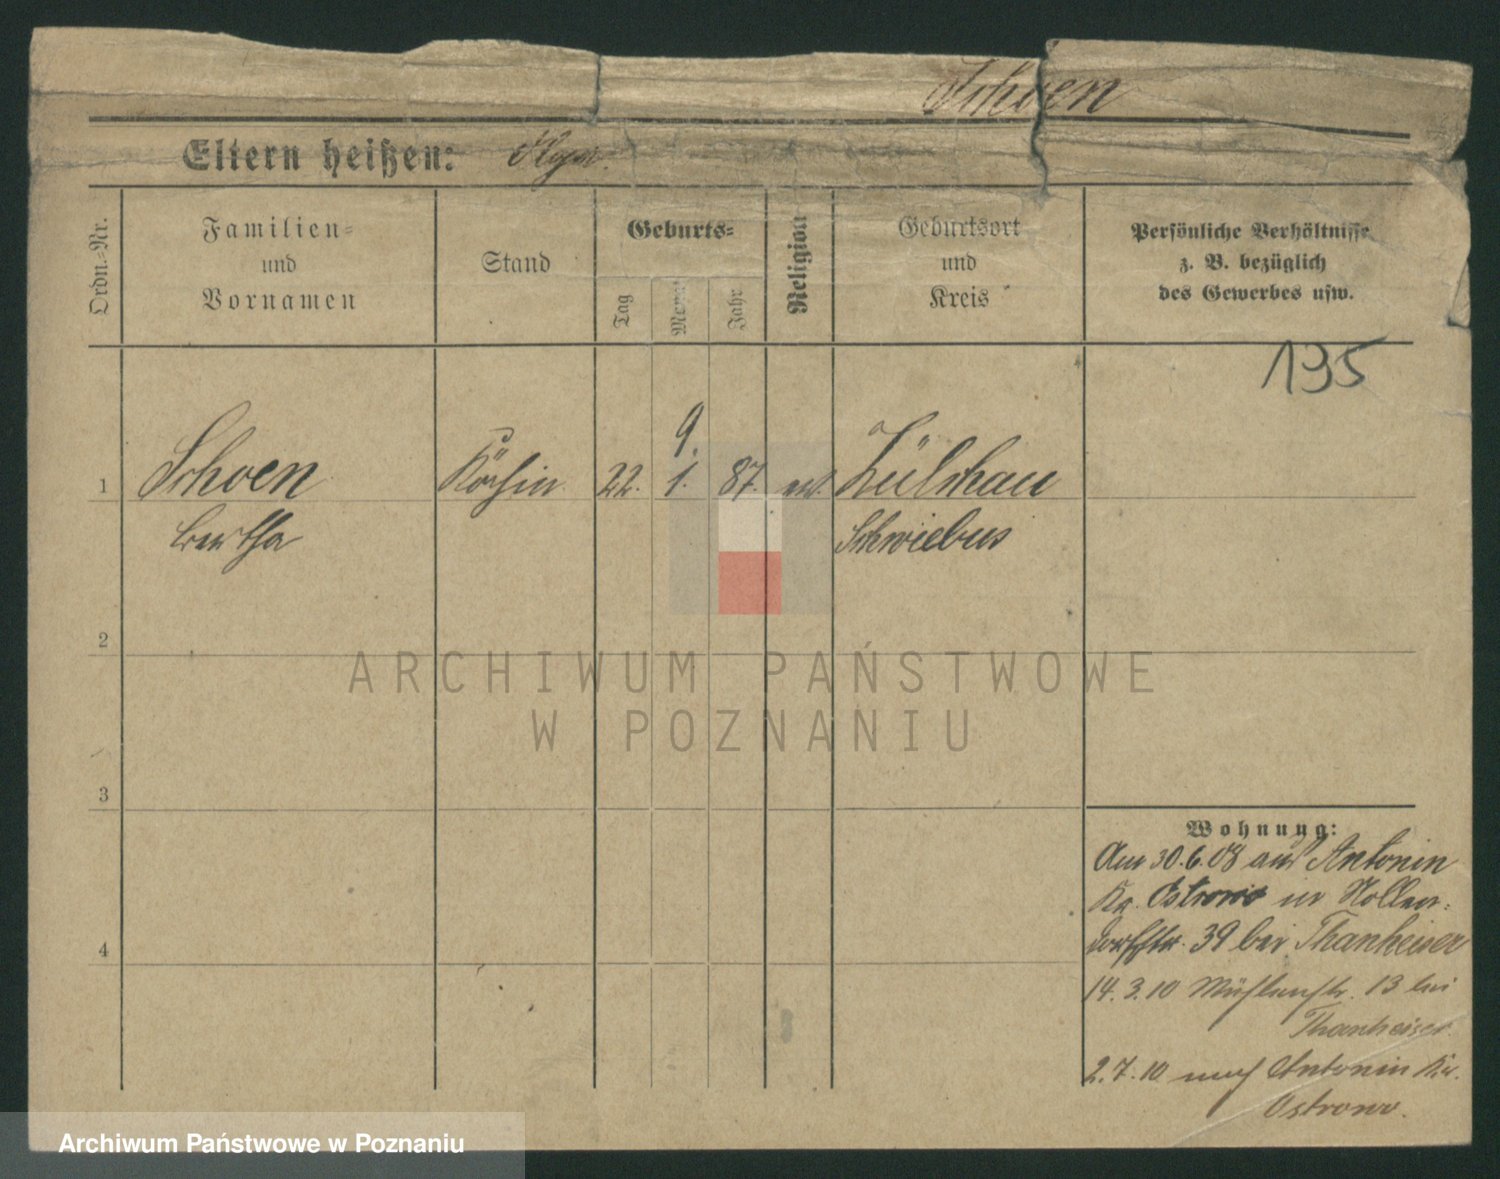 Schoen
Eltern heißen:
Ordn.-Nr.
Familien-
und
Vornamen
Stand
Geburts-
Tag
Monat
Jahr
Religion
Geburtsort
und
Kreis
Persönliche Verhältnisse
z. B. bezüglich
des Gewerbes usw.
195
9.
1 Schoen Köchin 22. 1. 87. ev. Züllchau
Bertha Schwiebus
2
3
4
Wohnung:
Am 30.6.08 aus Antonin
Kr. Ostrowo in Hollen-
dorffstr. 39 bei Thanheiser
14.3.10 Mühlenstr. 13 bei
Thanheiser.
2.7.10 nach Antonin Kr.
Ostrowo.
ARCHIWUM PAŃSTWOWE
W POZNANIU
Archiwum Państwowe w Poznaniu